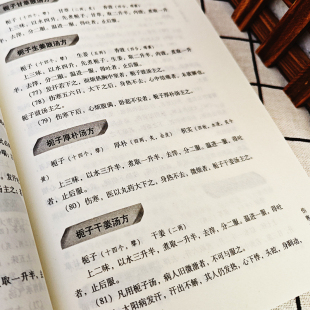 栀子甘草豉汤方
栀子（十四个，擘） 甘草
上三味，以水四升，先煮栀子、甘草，取二升半，内豉，煮取一升
半，去滓，分二服，温进一服，得吐者，止后服。
栀子生姜豉汤方
栀子（十四个，擘） 生姜 香豉
上三味，以水四升，先煮栀子、生姜，取二升半，内豉，煮取一升
半，去滓，分二服，温进一服，得吐者，止后服。
（77）发汗若下之，而烦热胸中窒者，栀子豉汤主之。
（78）伤寒五六日，大下之后，身热不去，心中结痛者，未欲解也，
栀子豉汤主之。
（79）伤寒下后，心烦腹满，卧起不安者，栀子厚朴汤主之。
栀子厚朴汤方
栀子（十四个，擘） 厚朴 枳实
上三味，以水三升半，煮取一升半，去滓，分二服，温进一服，得吐
者，止后服。
（80）伤寒，医以丸药大下之，身热不去，微烦者，栀子干姜汤主之。
栀子干姜汤方
栀子（十四个，擘） 干姜（二两）
上二味，以水三升半，煮取一升半，去滓，分二服，温进一服，得吐
者，止后服。
（81）凡用栀子汤，病人旧微溏者，不可与服之。
太阳病发汗，汗出不解，其人仍发热，心下悸，头眩，身瞤动，